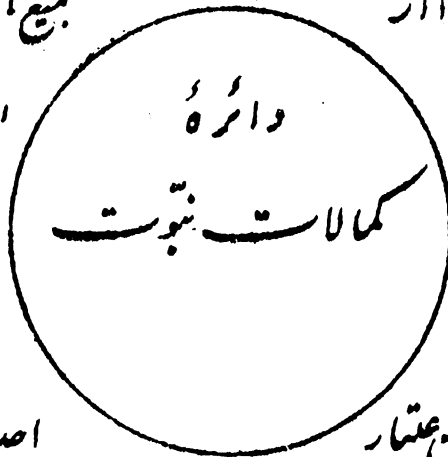 دائرۂ
کمالات نبوّت
اعتبار